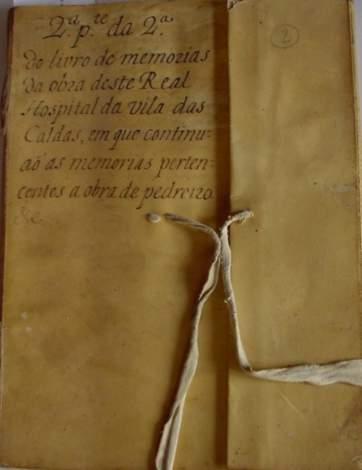 2.ª p.te da 2.ª
do livro de memorias
da obra deste Real
Hospital da vila das
Caldas, em que continu-
aõ as memorias perten-
centes a obra de pedreiro
&c.
2